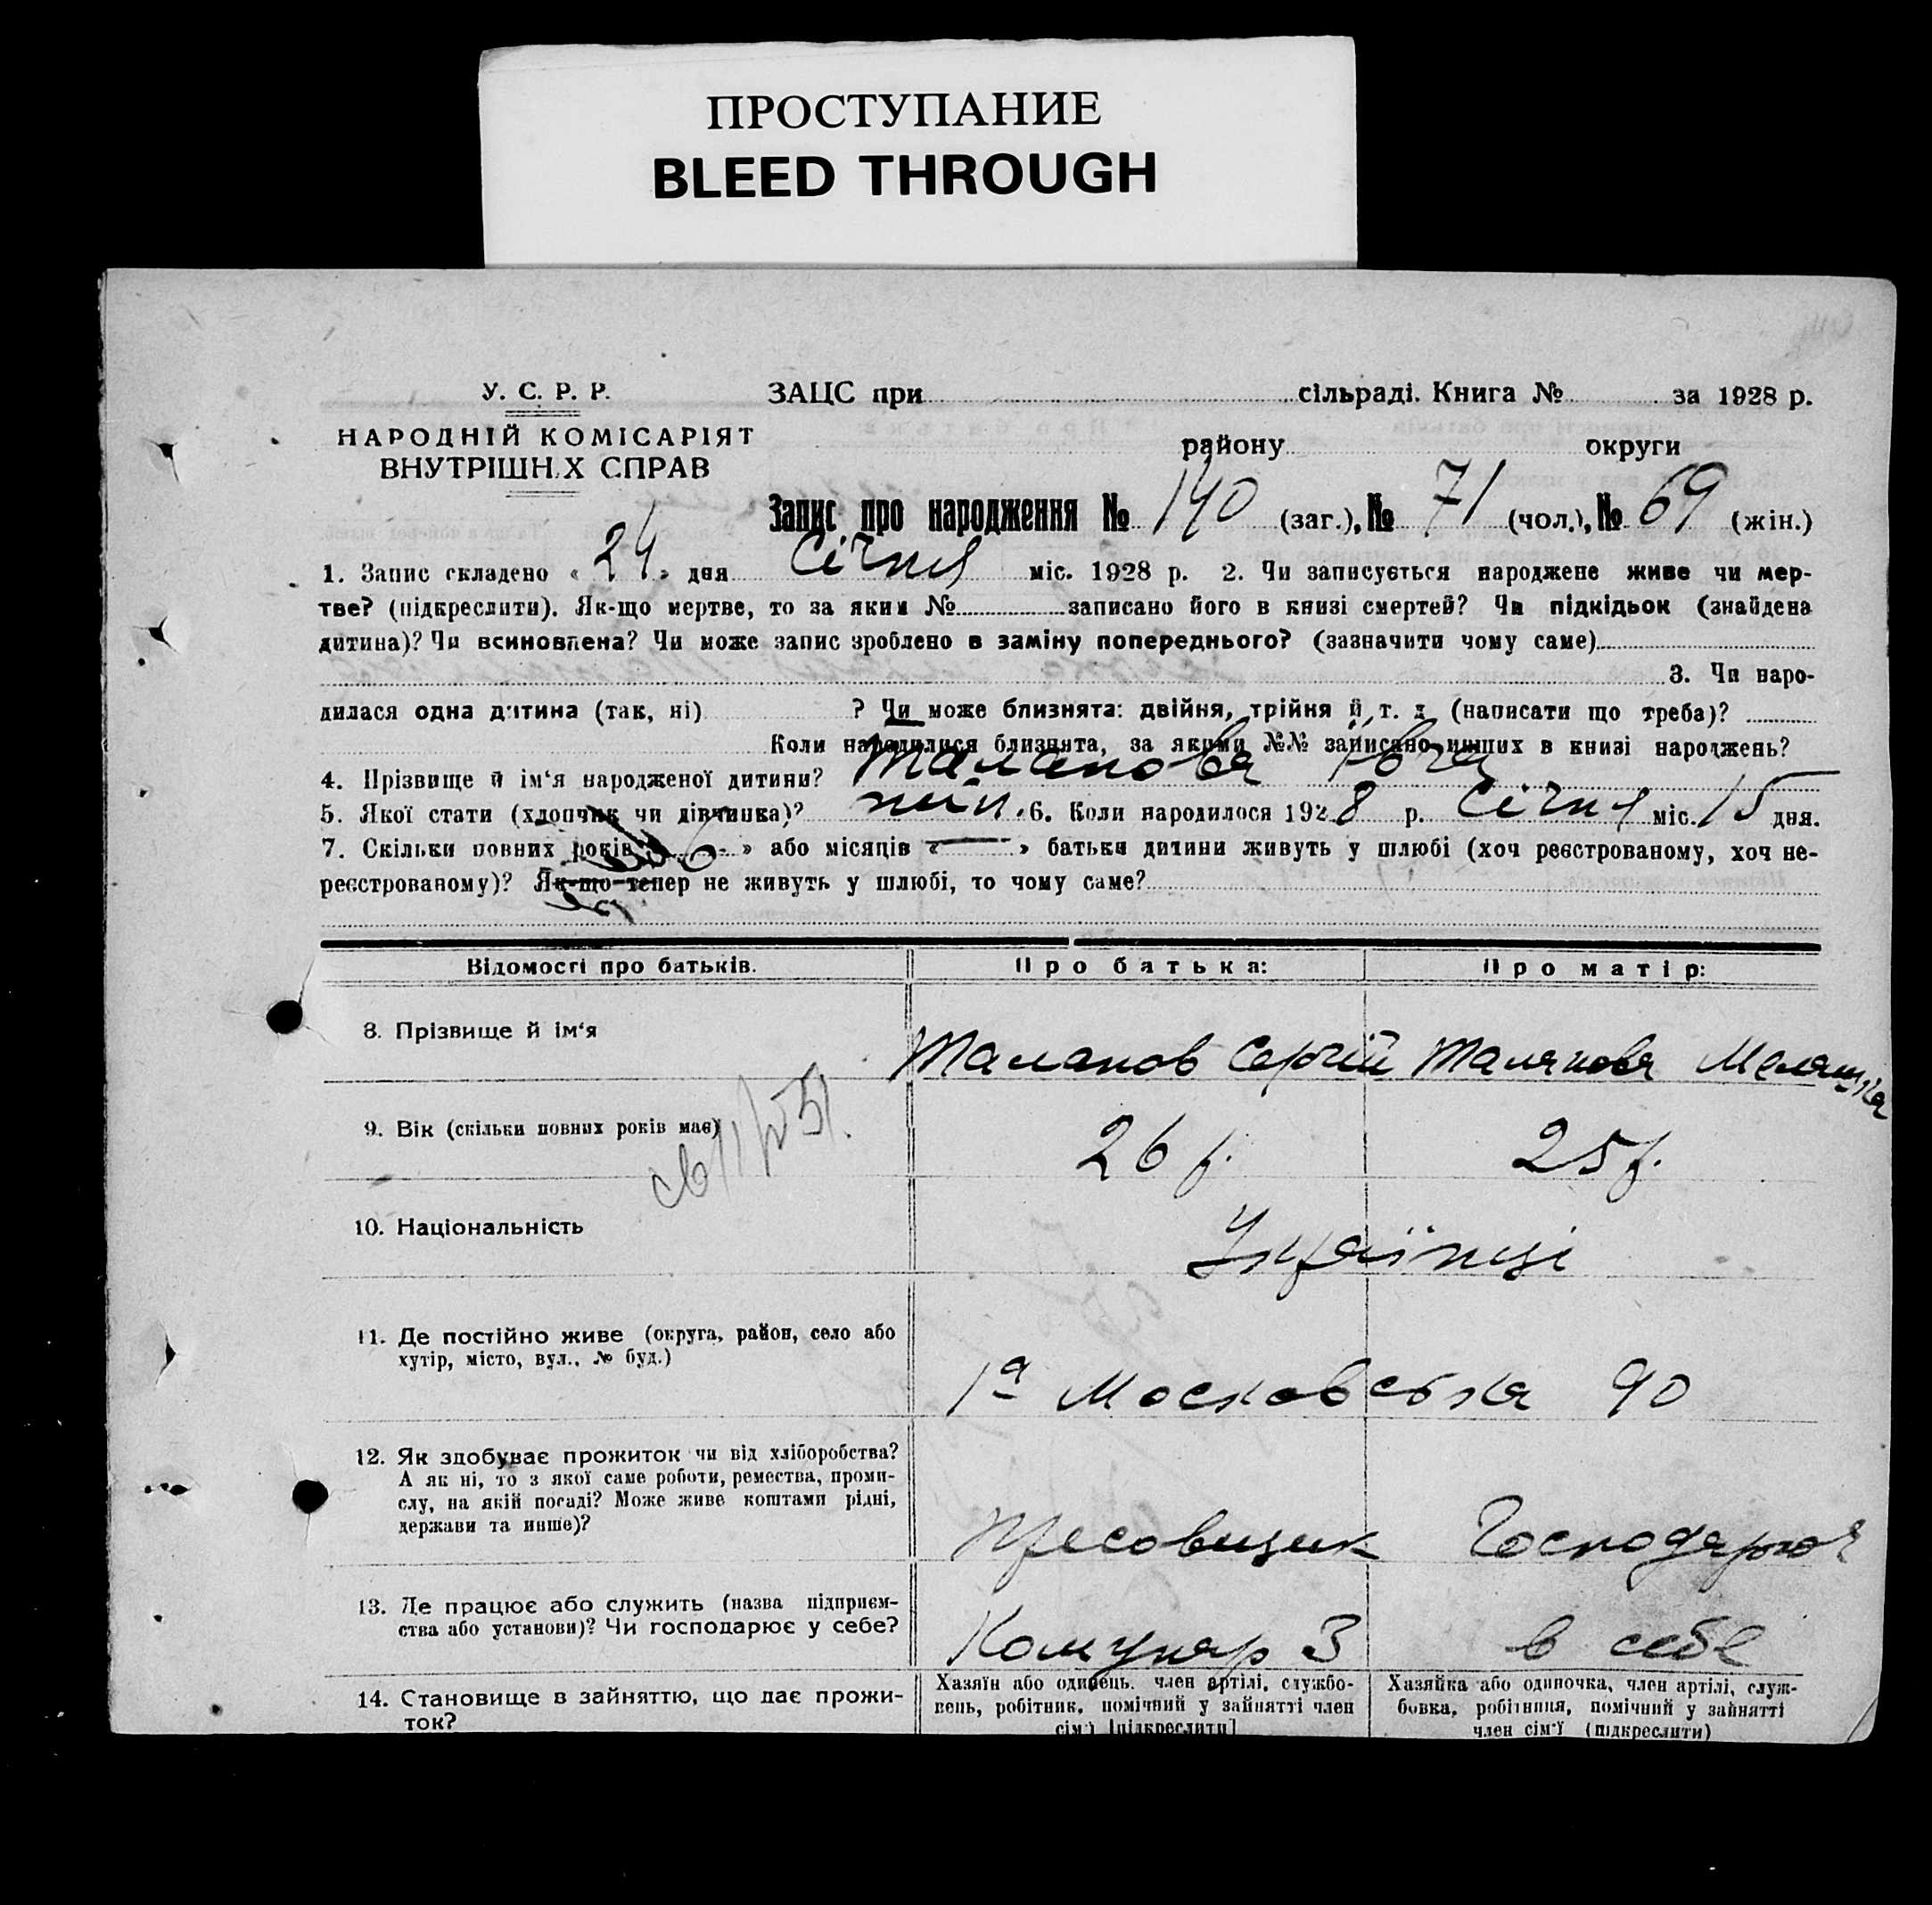 ПРОСТУПАНИЕ
BLEED THROUGH
У. С. Р. Р.
НАРОДНІЙ КОМІСАРІЯТ
ВНУТРІШНІХ СПРАВ
ЗАЦС при сільраді. Книга № за 1928 р.
району округи
Запис про народження № 140 (заг.), № 71 (чол.), № 69 (жін.)
1. Запис складено « 24 » дня Січня міс. 1928 р. 2. Чи записується народжене живе чи мер-
тве? (підкреслити). Як-що мертве, то за яким № записано його в книзі смертей? Чи підкідьок (знайдена
дитина)? Чи всиновлена? Чи може запис зроблено в заміну попереднього? (зазначити чому саме)
3. Чи наро-
дилася одна дитина (так, ні) ? Чи може близнята: двійня, трійня й т. д. (написати що треба)?
Коли народилися близнята, за якими №№ записано инших в книзі народжень?
4. Прізвище й ім'я народженої дитини? Таланова
5. Якої статі (хлопчик чи дівчинка)? 6. Коли народилося 1928 р. Січня міс. 15 дня.
7. Скільки повних років « 6 » або місяців « — » батьки дитини живуть у шлюбі (хоч реєстрованому, хоч не-
реєстрованому)? Як-що тепер не живуть у шлюбі, то чому саме?
Відомості про батьків. Про батька: Про матір:
8. Прізвище й ім'я Таланов Сергій Таланова Меланка
9. Вік (скільки повних років має) 26 р. 25 р.
10. Національність Українці
11. Де постійно живе (округа, район, село або
хутір, місто, вул., № буд.) 1а Московська 90
12. Як здобуває прожиток чи від хліборобства?
А як ні, то з якої саме роботи, ремества, проми-
слу, на якій посаді? Може живе коштами рідні,
держави та инше)? Пресовщик Господарює
13. Де працює або служить (назва підприєм-
ства або установи)? Чи господарює у себе? Комунар З в себе
14. Становище в зайняттю, що дає прожи-
ток?
Хазяїн або одинець, член артілі, службо-
вець, робітник, помічний у зайнятті член
сім'ї [підкреслити]
Хазяйка або одиночка, член артілі, служ-
бовка, робітниця, помічний у зайнятті
член сім'ї (підкреслити)